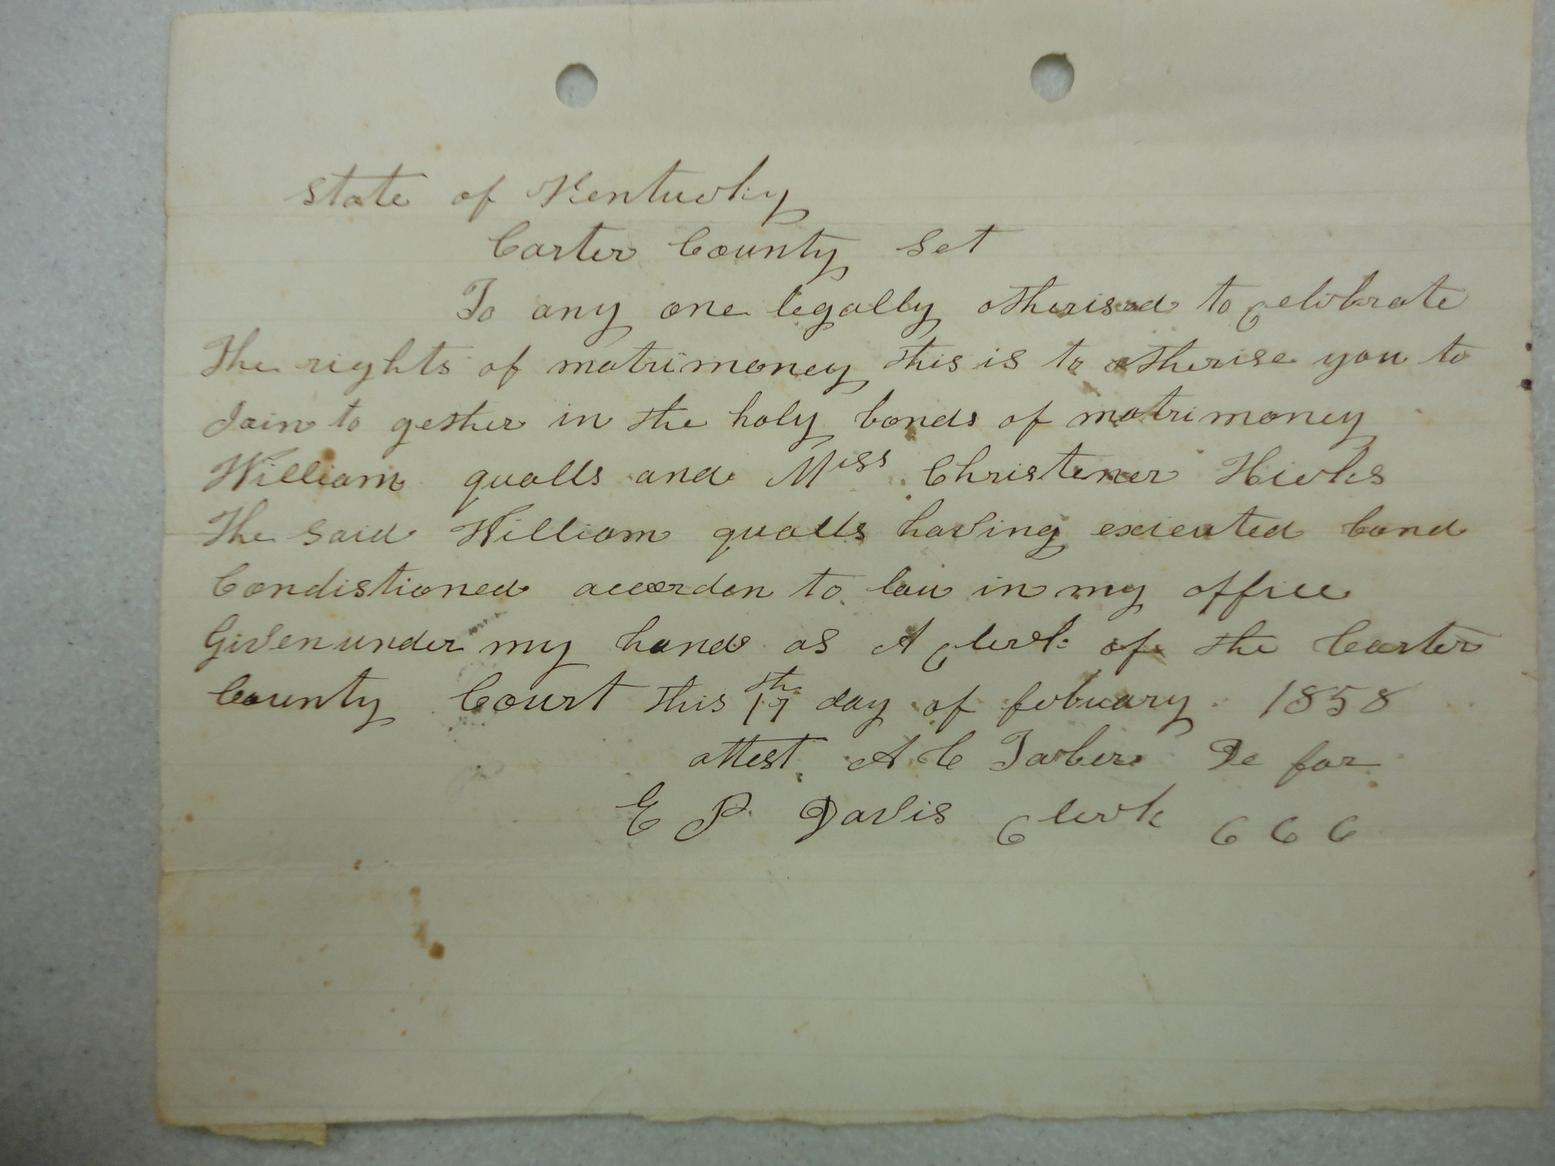 State of Kentucky
Carter County Set
To any one legally otherised to celebrate
The rights of matrimoney this is to otherise you to
Join to gesther in the holy bonds of matrimoney
William qualls and Miss Christener Hicks
The Said William qualls having exicuted bond
Condistioned accorden to law in my office
Given under my hand as A clerk of the Carter
County Court this 17th day of febuary 1858
attest A C De for
E P Davis Clerk C C C